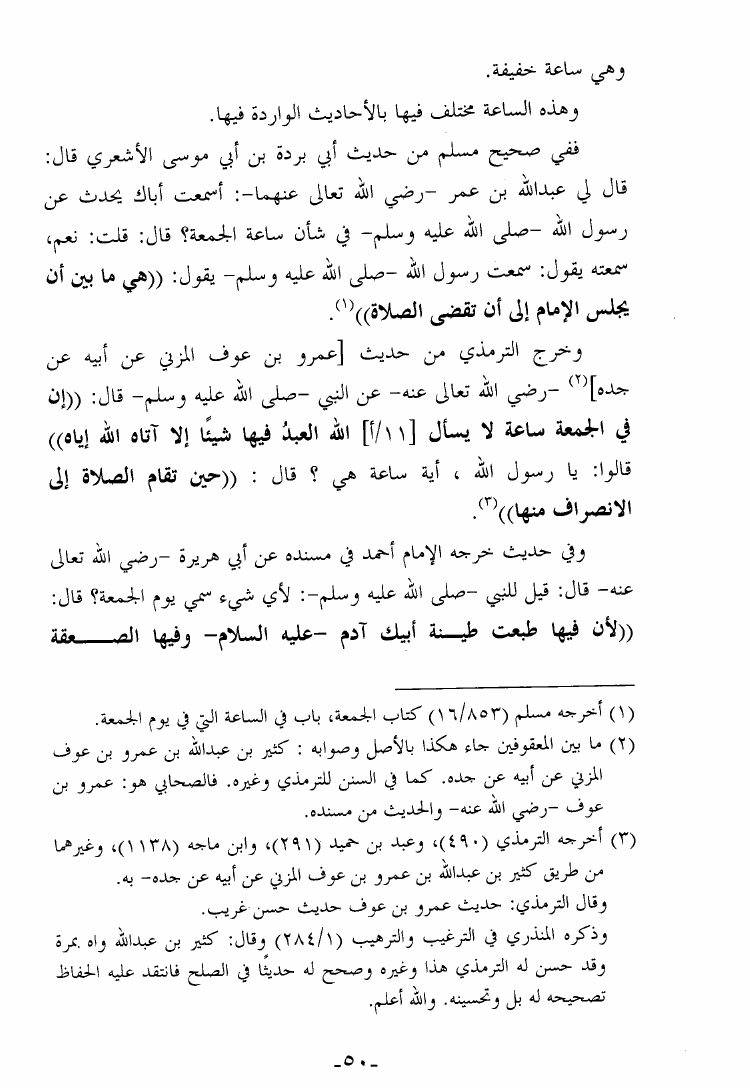 وهي ساعة خفيفة.
وهذه الساعة مختلف فيها بالأحاديث الواردة فيها.
ففي صحيح مسلم من حديث أبي بردة بن أبي موسى الأشعري قال:
قال لي عبدالله بن عمر –رضي الله تعالى عنهما–: أسمعت أباك يحدث عن
رسول الله –صلى الله عليه وسلم– في شأن ساعة الجمعة؟ قال: قلت: نعم،
سمعته يقول: سمعت رسول الله –صلى الله عليه وسلم– يقول: ((هي ما بين أن
يجلس الإمام إلى أن تقضى الصلاة))(١).
وخرج الترمذي من حديث [عمرو بن عوف المزني عن أبيه عن
جده](٢) –رضي الله تعالى عنه– عن النبي –صلى الله عليه وسلم– قال: ((إن
في الجمعة ساعة لا يسأل [١١/أ] الله العبدُ فيها شيئًا إلا آتاه الله إياه))
قالوا: يا رسول الله ، أية ساعة هي ؟ قال : ((حين تقام الصلاة إلى
الانصراف منها))(٣).
وفي حديث خرجه الإمام أحمد في مسنده عن أبي هريرة –رضي الله تعالى
عنه– قال: قيل للنبي –صلى الله عليه وسلم–: لأي شيء سمي يوم الجمعة؟ قال:
((لأن فيها طبعت طيـــنة أبيك آدم –عليه السلام– وفيها الصـــــعقة
(١) أخرجه مسلم (١٦/٨٥٣) كتاب الجمعة، باب في الساعة التي في يوم الجمعة.
(٢) ما بين المعقوفين جاء هكذا بالأصل وصوابه : كثير بن عبدالله بن عمرو بن عوف
المزني عن أبيه عن جده. كما في السنن للترمذي وغيره. فالصحابي هو: عمرو بن
عوف –رضي الله عنه– والحديث من مسنده.
(٣) أخرجه الترمذي (٤٩٠)، وعبد بن حميد (٢٩١)، وابن ماجه (١١٣٨)، وغيرهما
من طريق كثير بن عبدالله بن عمرو بن عوف المزني عن أبيه عن جده– به.
وقال الترمذي: حديث عمرو بن عوف حديث حسن غريب.
وذكره المنذري في الترغيب والترهيب (٢٨٤/١) وقال: كثير بن عبدالله واه بمرة
وقد حسن له الترمذي هذا وغيره وصحح له حديثًا في الصلح فانتقد عليه الحفاظ
تصحيحه له بل وتحسينه. والله أعلم.
-٥٠-